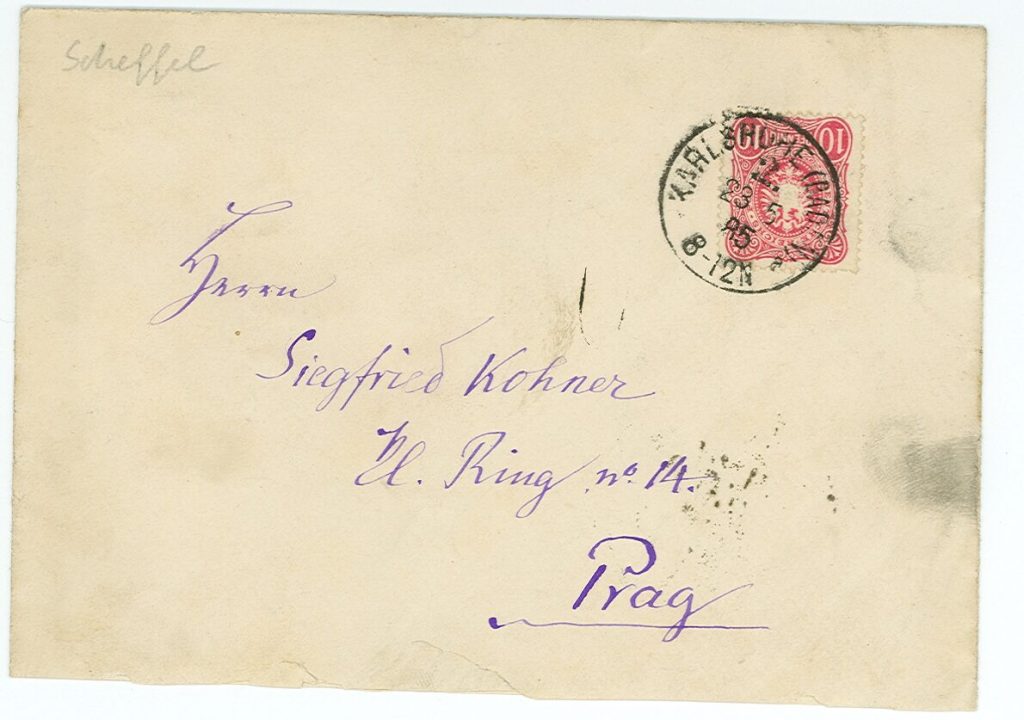 Scheffel
10 10
KARLSRUHE (BADEN)
23 5
85
8-12N
Herrn
Siegfried Kohner
Kl. Ring no 14.
Prag